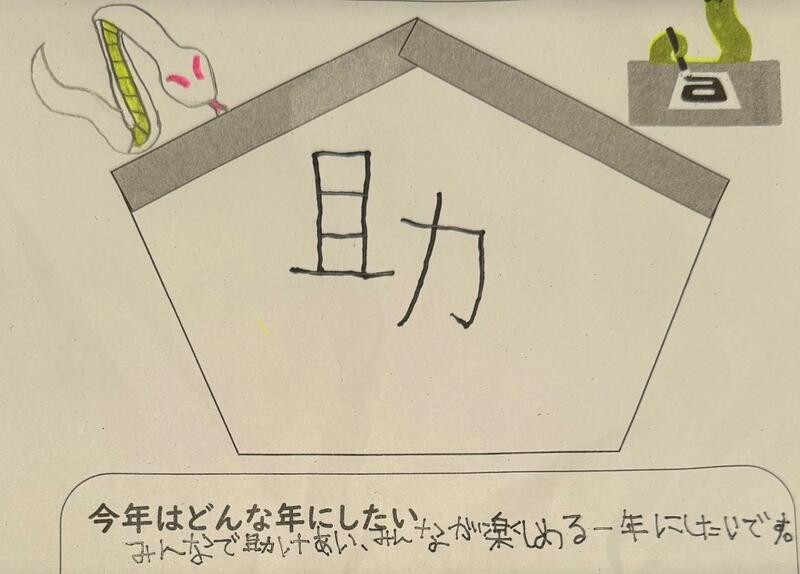 助
今年はどんな年にしたい
みんなで助けあい、みんなが楽しめる一年にしたいです。